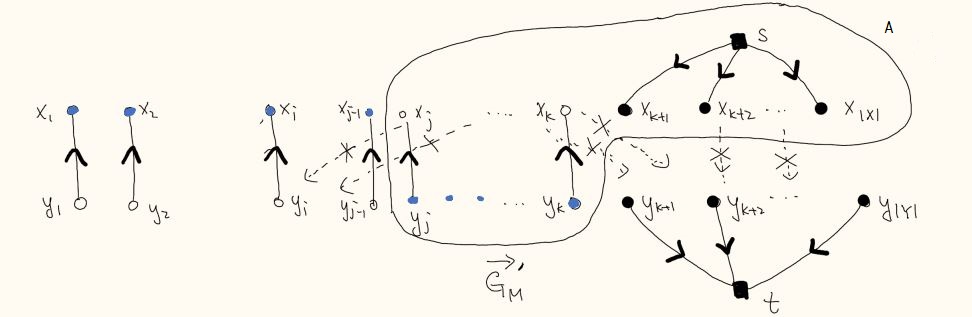 A
S
x₁ x₂ xᵢ xⱼ₋₁ xⱼ ... xₖ xₖ₊₁ xₖ₊₂ ... x|X|
y₁ y₂ yᵢ yⱼ₋₁ yⱼ ... yₖ yₖ₊₁ yₖ₊₂ ... y|Y|
G⃗'M
t